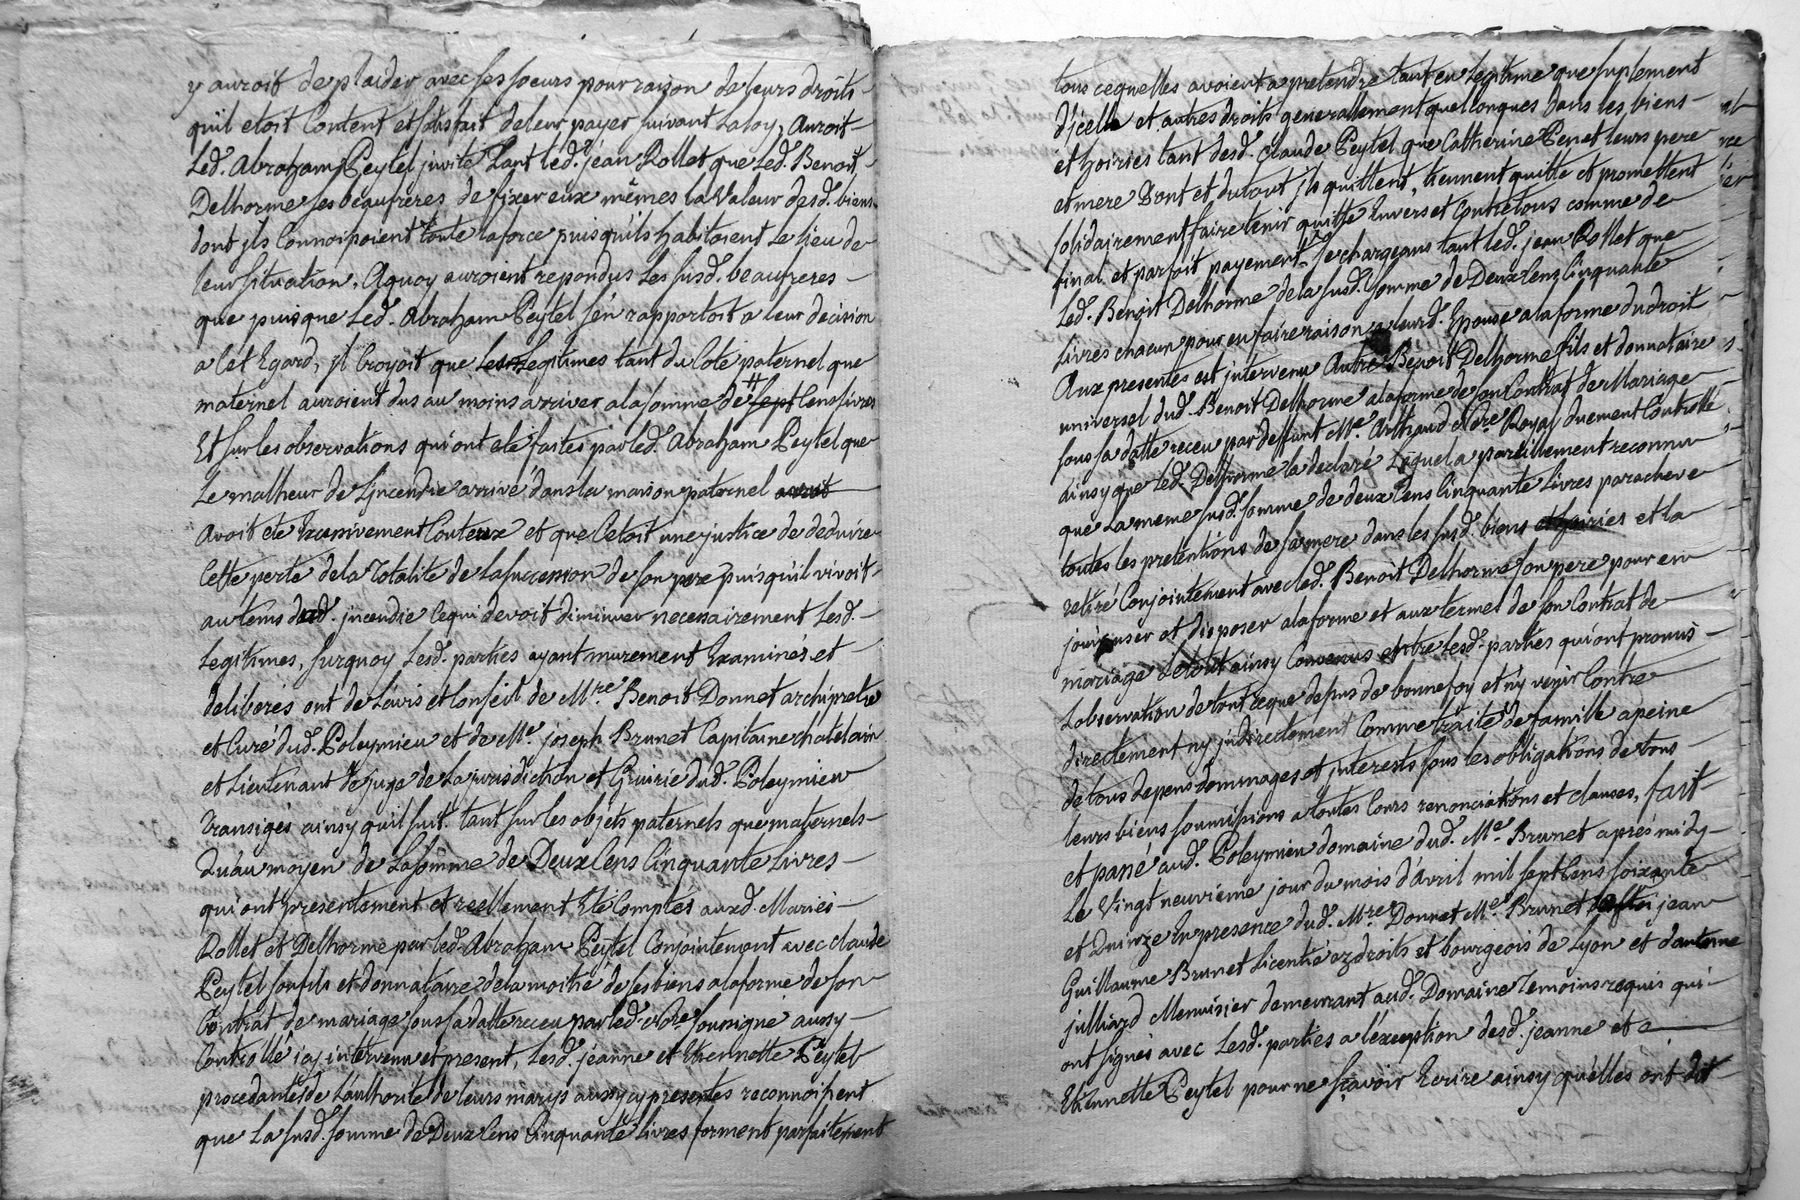 y auroit de plaider avec ses soeurs pour raison de leurs droits
qu'il etoit Content et satisfait de leur payer suivant la loy, Auroit
Led. Abraham Peytel invité tant led. jean Rollet que led. Benoit
Delhorme ses beaufreres de fixer eux mêmes la Valeur desd. biens
dont jls Connoissoient toute la force puisqu'ils habitoient Le lieu de
leur situation, Aquoy auroient repondus Les susd. beaufreres
que puisque Led. Abraham Peytel s'en rapportoit a leur decision
a Cet Egard, jl Croyoit que Les Legitimes tant du Coté paternel que
maternel auroient dus au moins arriver a la somme de sept Cens livres
Et sur les observations qui ont eté faites par led. Abraham Peytel que
Le malheur de Lincendie arrivé dans la maison paternel avoit
Avoit eté Excessivement Couteux et que C'etoit une justice de deduire
Cette perte de la Totalité de La succession de son pere puisqu'il vivoit
au tems dud. jncendie Ce qui devoit diminuer necessairement Lesd.
Legitimes, surquoy Lesd. parties ayant murement Examinés et
deliberés ont de L'avis et Conseil de Mre. Benoit Donnet archiprêtre
et Curé dud. Poleymieu et de Me. joseph Brunet Capitaine chatelain
et Lieutenant de juge de La jurisdiction et Gruirie dud. Poleymieu
Transigés ainsy qu'il suit. tant sur les objets paternels que maternels
Qu'au moyen de La somme de Deux Cens Cinquante Livres
qui ont presentement et reellement Eté Comptés auxd. Mariés
Rollet et Delhorme par led. Abraham Peytel Conjointement avec claude
Peytel son fils et donnataire de la moitié de ses biens a la forme de son
Contrat de mariage sous sa datte receu par led. Nore. soussigné aussy
Controllé icy intervenu et present, Lesd. jeanne et Etiennette Peytel
procedantes de L'authorité de leurs marys aussy cy presentes reconnoissent
que La susd. somme de Deux Cens Cinquante livres forment parfaitement
tous ce qu'elles avoient a pretendre tant en Legitime que suplement
d'jcelle et autres droits generallement quelconques dans les biens
et hoiries tant desd. Claude Peytel que Catherine Penet leurs pere
et mere Dont et du tout jls quittent, tiennent quitte et promettent
solidairement faire tenir quitte Envers et Contre tous comme de
final et parfait payement, se chargeans tant led. jean Rollet que
Led. Benoit Delhorme de la susd. somme de Deux Cens Cinquante
Livres chacun pour en faire raison a leurd. Epouse a la forme du droit
Aux presentes est jntervenu Autre Benoit Delhorme fils et donnataire
universel dud. Benoit Delhorme a la forme de son Contrat de Mariage
sous sa datte receu par deffunt Me. Arthaud Nore. Royal duement Controllé
ainsy que Led. Delhorme la declaré Lequel a pareillement reconnu
que La meme susd. somme de deux Cens Cinquante Livres paracheve
toutes les pretentions de sa mere dans les susd. biens et hoiries et la
retiré Conjointement avec led. Benoit Delhorme son pere pour en
jouir user et disposer a la forme et aux termes de son Contrat de
mariage Le tout ainsy Convenus entre Lesd. parties qui ont promis
L'observation de tout ce que dessus de bonne foy et n'y venir Contre
directement ny jndirectement Comme traité de famille a peine
de tous depens dommages et jnterests sous les obligations de tous
leurs biens soumissions a toutes Cours renonciations et clauses, fait
et passé aud. Poleymieu domaine dud. Me. Brunet aprés midy
Le Vingt neuvieme jour du mois d'avril mil sept Cens soixante
et Quinze En presence dud. Mre. Donnet Me. Brunet jean
Guillaume Brunet Licentié ez droits et bourgeois de Lyon et d'antoinne
julliard Menuisier demeurant aud. Domaine Temoins requis qui
ont signés avec Lesd. parties a l'exception desd. jeanne et
Etiennette Peytel pour ne sçavoir Ecrire ainsy qu'elles ont dit